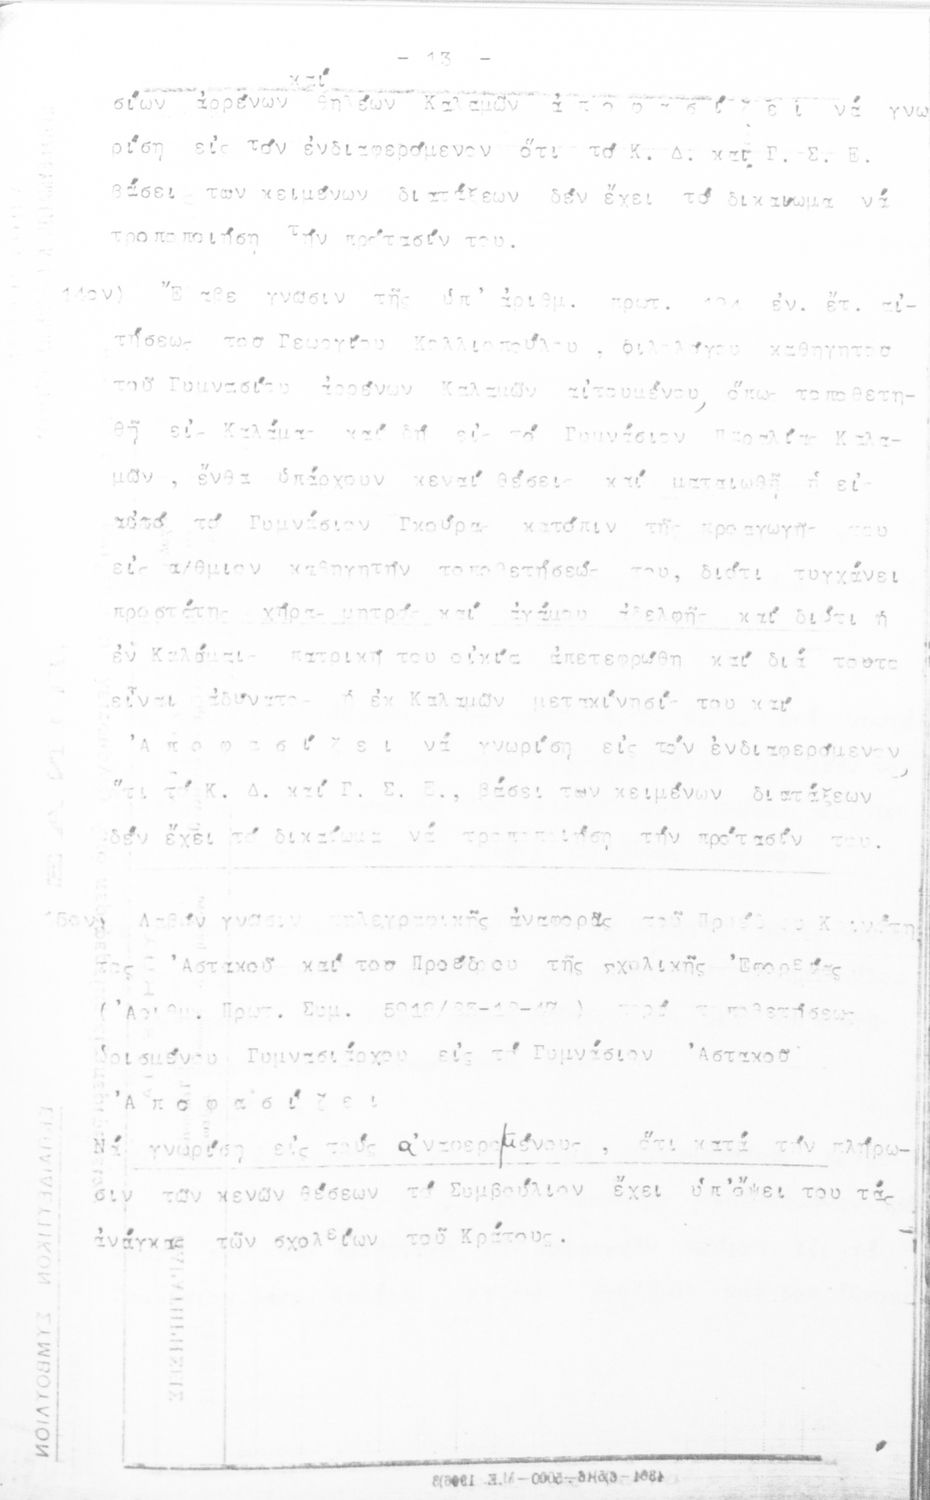 - 13 -
καί
σίων ἀρρένων θηλέων Καλαμῶν ἀ π ο φ α σ ί ζ ε ι νά γνω
ρίση εἰς τόν ἐνδιαφερόμενον ὅτι τό Κ. Δ. καί Γ. Σ. Ε.
βάσει των κειμένων διατάξεων δέν ἔχει τό δικαιωμα νά
τροποποιήση τήν πρότασίν του.
14ον) Ἔλαβε γνῶσιν τῆς ὑπ' ἀριθμ. πρωτ. ἐν. ἔτ. αἰ-
τήσεως του Γεωργίου Καλλιοπούλου , φιλολόγου καθηγητοῦ
τοῦ Γυμνασίου ἀρρένων Καλαμῶν αἰτουμένου, ὅπως τοποθετη-
θῆ εἰς Καλάμας καί δή εἰς τό Γυμνάσιον Παραλίας Καλα-
μῶν , ἔνθα ὑπάρχουν κεναί θέσεις καί ματαιωθῆ ἡ εἰς
αὐτό τό Γυμνάσιον Γκούρας κατόπιν τῆς προαγωγῆς του
εἰς α/θμιον καθηγητήν τοποθετήσεώς του, διότι τυγχάνει
προστάτης χήρας μητρός καί ἀγάμου ἀδελφῆς καί διότι ἡ
ἐν Καλάμαις πατρική του οἰκία ἀπετεφρώθη καί διά τουτο
εἶναι ἀδύνατος ἡ ἐκ Καλαμῶν μετακίνησίς του καί
'Α π ο φ α σ ί ζ ε ι νά γνωρίση εἰς τόν ἐνδιαφερόμενον,
ὅτι τό Κ. Δ. καί Γ. Σ. Ε., βάσει των κειμένων διατάξεων
δέν ἔχει τό δικαίωμα νά τροποποιήση τήν πρότασίν του.
15ον) Λαβόν γνῶσιν τηλεγραφικῆς ἀναφορᾶς τοῦ Προέδρου Κοινότη
τος 'Αστακοῦ καί του Προέδρου τῆς σχολικῆς 'Εφορείας
('Αριθμ. Πρωτ. Συμ. ) περί τοποθετήσεως
ὡρισμένου Γυμνασιάρχου εἰς τό Γυμνάσιον 'Αστακοῦ
'Α π ο φ α σ ί ζ ε ι
Νά γνωρίση εἰς τούς ἀναφερομένους , ὅτι κατά τήν πλήρω-
σιν τῶν κενῶν θέσεων τό Συμβούλιον ἔχει ὑπ'ὄψει του τάς
ἀνάγκας τῶν σχολείων τοῦ Κράτους.
ΠΑΡΑΤΗΡΗΣΕΙΣ
ΕΚΠΑΙΔΕΥΤΙΚΟΝ ΣΥΜΒΟΥΛΙΟΝ